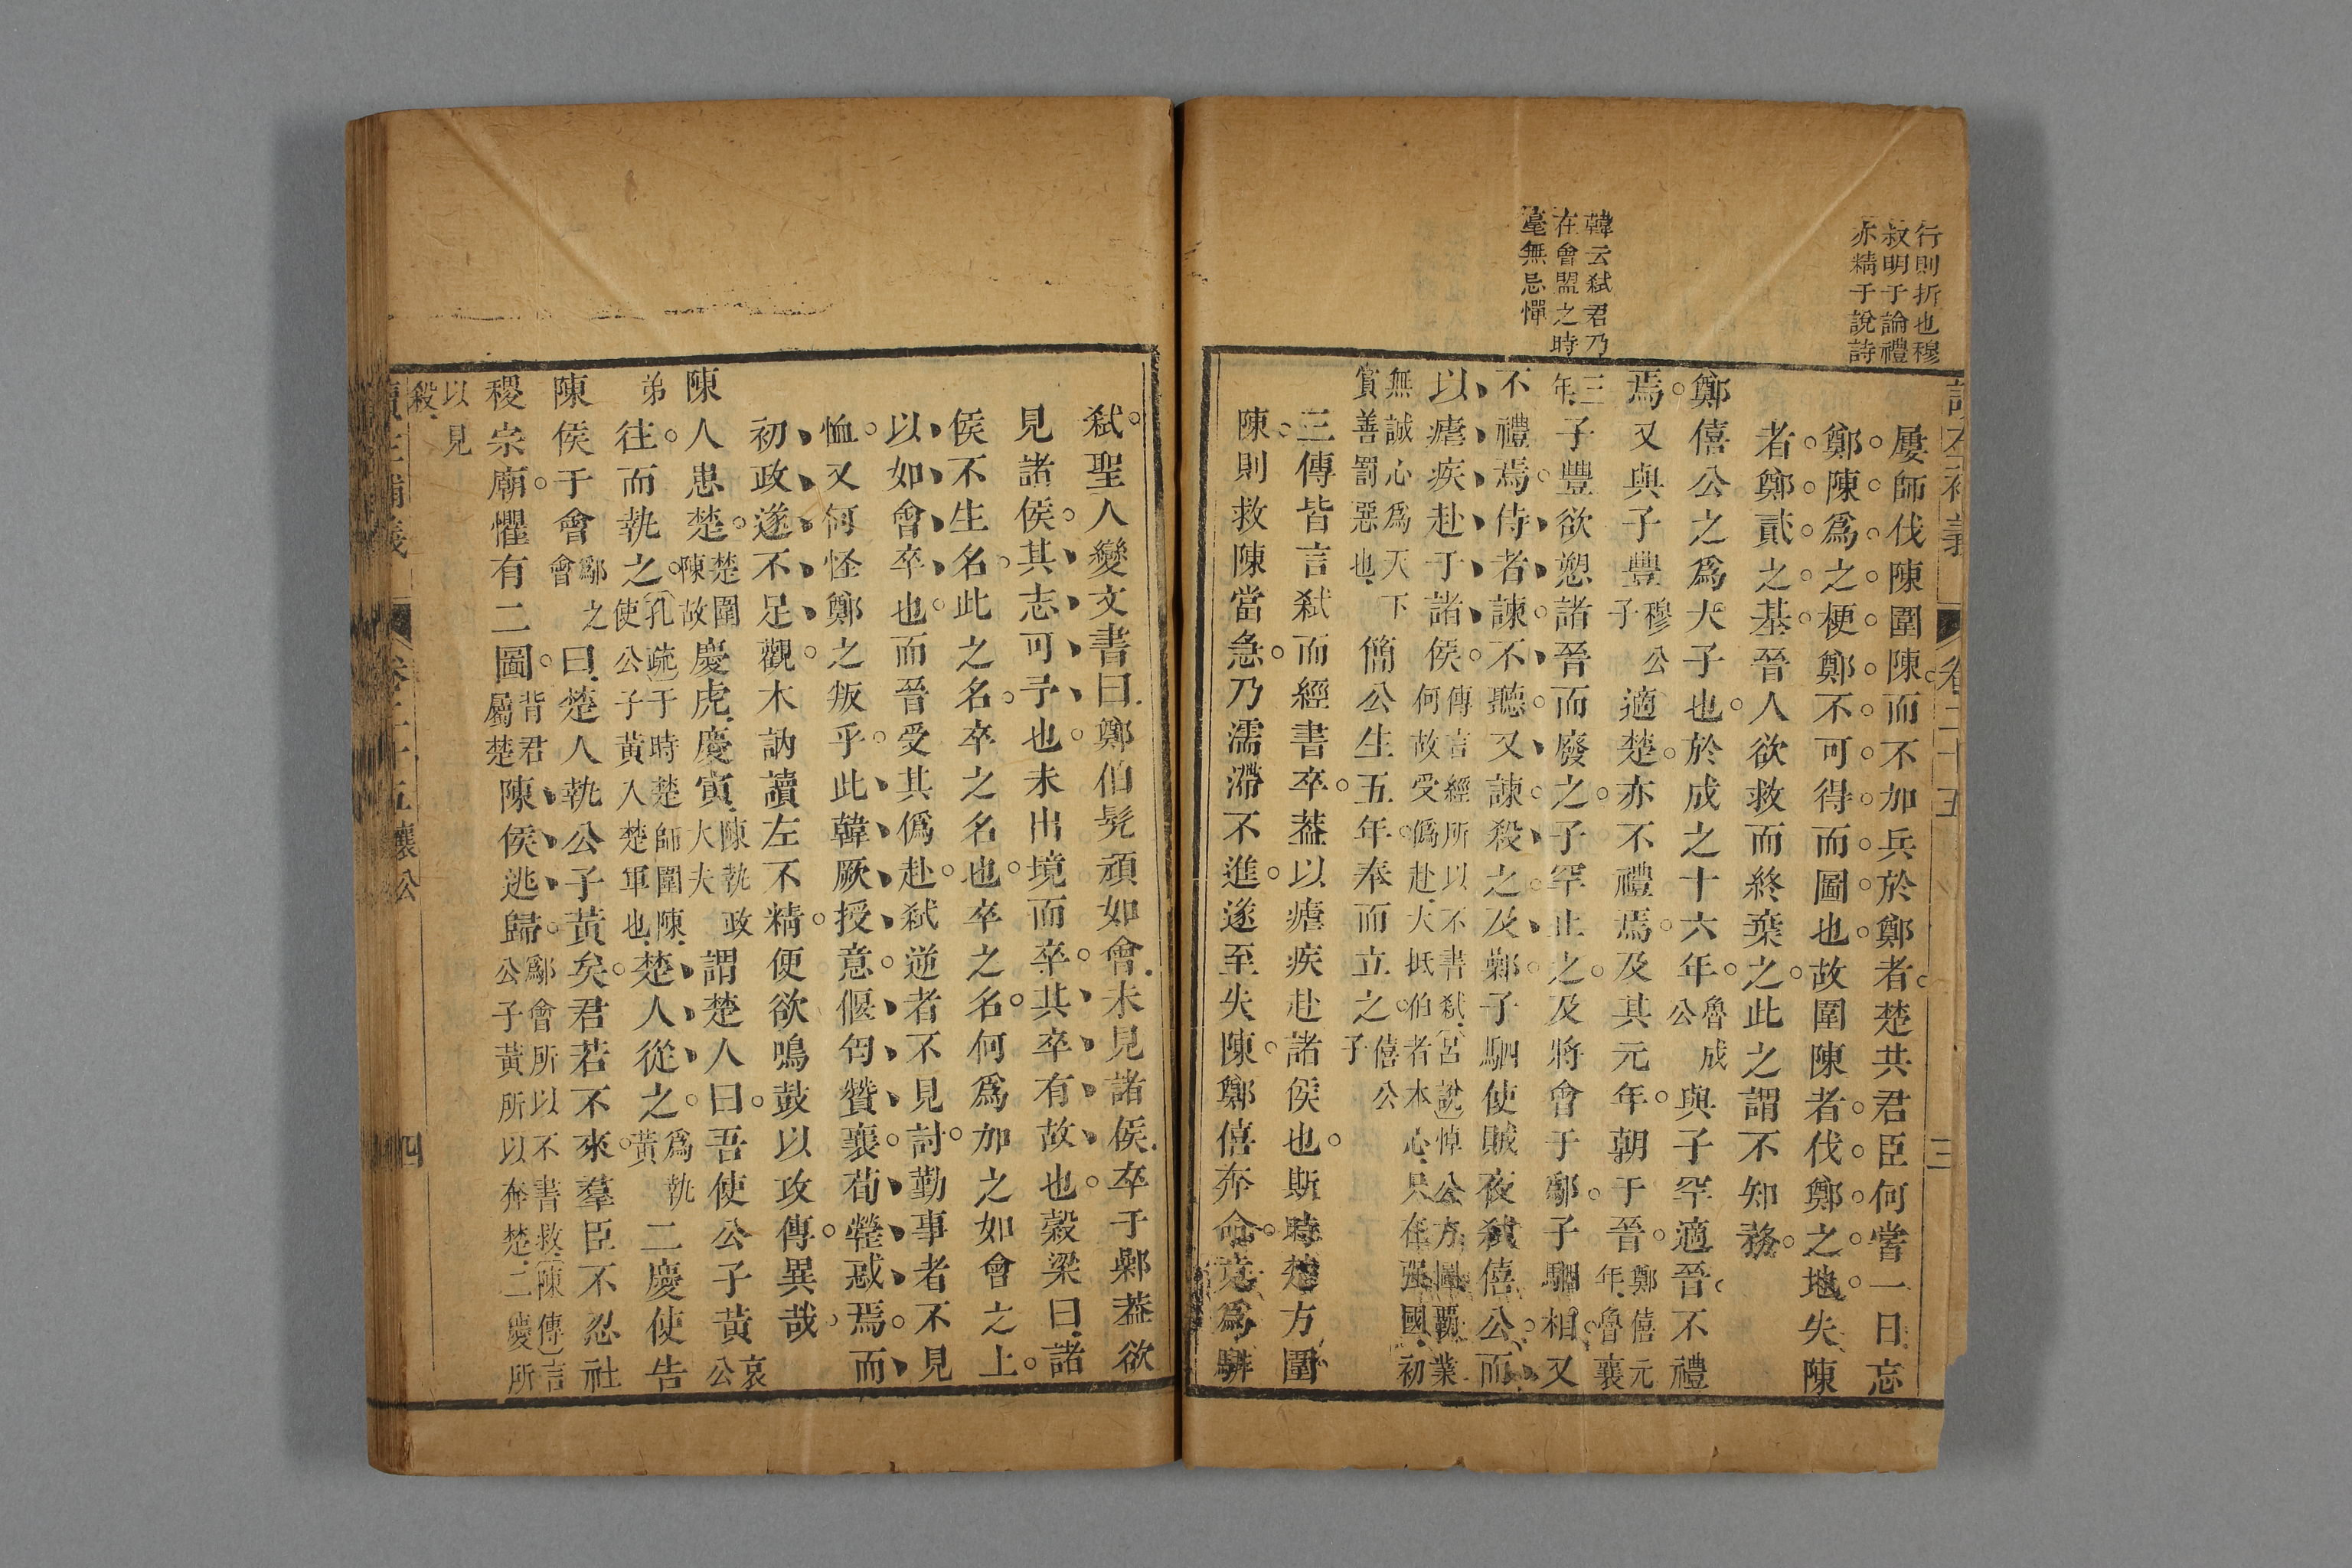 行則折也穆
叔明于論禮
亦精于說詩
韓云弑君乃
在會盟之時
毫無忌憚
卷二十五
三
屢師伐陳圍陳而不加兵於鄭者楚共君臣何嘗一日忘
鄭陳爲之梗鄭不可得而圖也故圍陳者伐鄭之地失陳
者鄭貳之基晉人欲救而終棄之此之謂不知務
鄭僖公之爲大子也於成之十六年魯成公與子罕適晉不禮
焉又與子豐穆公子適楚亦不禮焉及其元年朝于晉鄭僖元年魯襄
三年子豐欲愬諸晉而廢之子罕止之及將會于鄬子駟相又
不禮焉侍者諫不聽又諫殺之及鄵子駟使賊夜弑僖公而
以瘧疾赴于諸侯傳言經所以不書弑呂說悼公方圖霸業何故受僞赴大抵伯者本心只在强國初
無誠心爲天下賞善罰惡也簡公生五年奉而立之僖公子
三傳皆言弑而經書卒葢以瘧疾赴諸侯也斯時楚方圍
陳則救陳當急乃濡滯不進遂至失陳鄭僖奔命竟爲騈
弑聖人變文書曰鄭伯髡頑如會未見諸侯卒于鄵葢欲
見諸侯其志可予也未出境而卒其卒有故也穀梁曰諸
侯不生名此之名卒之名也卒之名何爲加之如會之上
以如會卒也而晉受其僞赴弑逆者不見討勤事者不見
恤又何怪鄭之叛乎此韓厥授意偃匄贊襄荀罃惑焉而
初政遂不足觀木訥讀左不精便欲鳴鼓以攻傳異哉
陳人患楚楚圍陳故慶虎慶寅陳執政大夫謂楚人曰吾使公子黄哀公
弟往而執之孔疏于時楚師圍陳使公子黄入楚軍也楚人從之爲執黄二慶使告
陳侯于會鄬之會曰楚人執公子黄矣君若不來羣臣不忍社
稷宗廟懼有二圖背君屬楚陳侯逃歸鄬會所以不書救陳傳言公子黄所以奔楚二慶所
以見殺
讀左補義
卷二十五
襄公
四